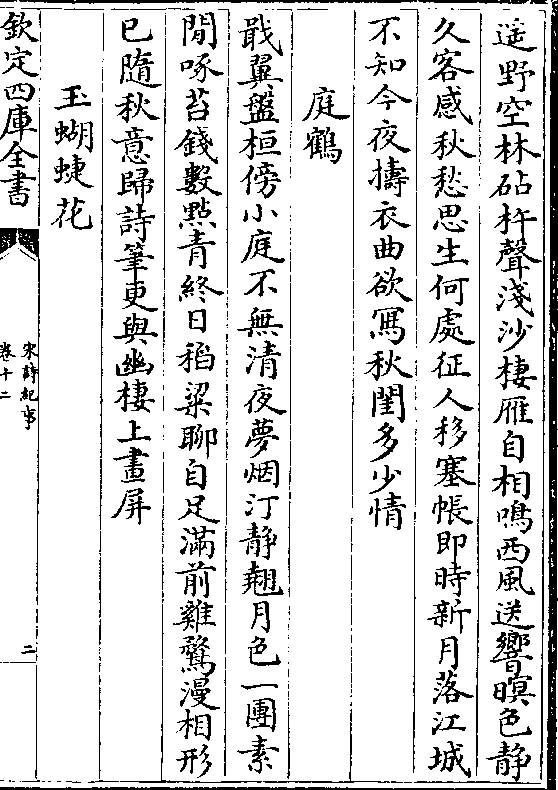 遥野空林砧杵聲淺沙棲雁自相鳴西風送響暝色靜
久客感秋愁思生何處征人移塞帳即時新月落江城
不知今夜擣衣曲欲寫秋閨多少情
庭鶴
戢翼盤桓傍小庭不無清夜夢烟汀静翹月色一團素
閒啄苔錢數點青終日稻粱聊自足滿前雞鶩漫相形
已隨秋意歸詩筆更與幽棲上畫屏
玉蝴蜨花
欽定四庫全書
宋詩紀事
卷十二
二